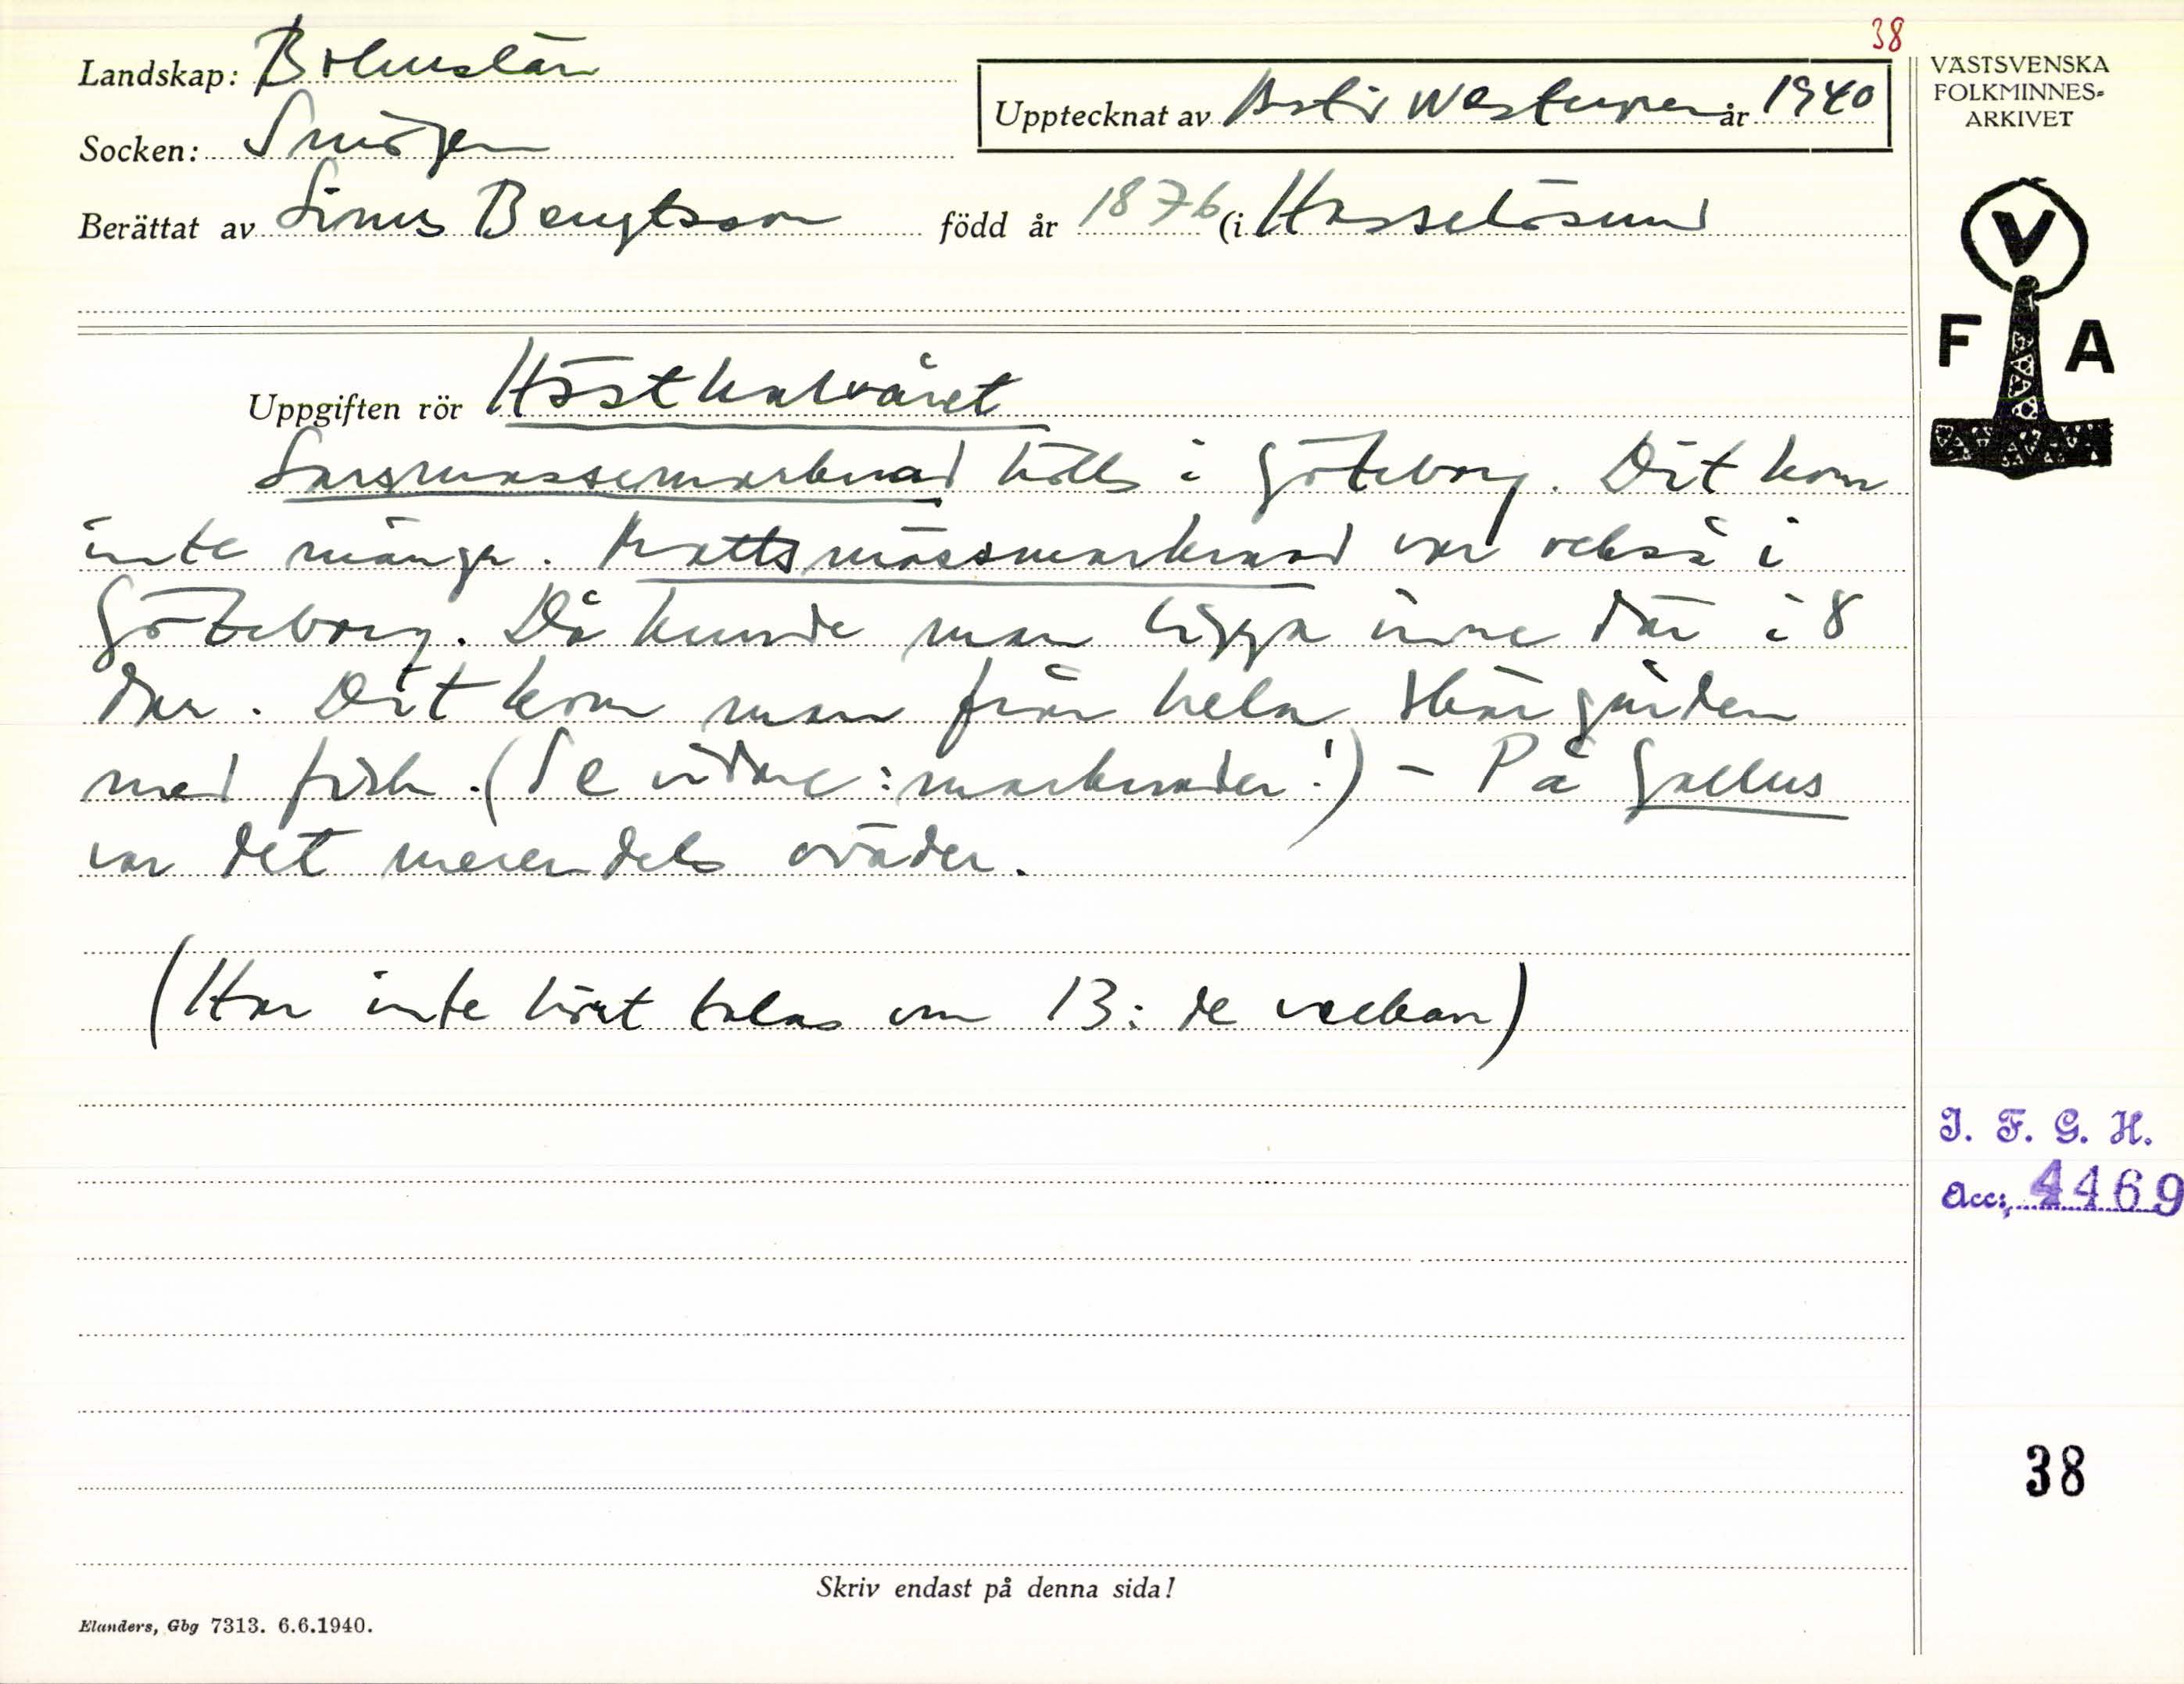 38
Landskap: Bohuslän
Upptecknat av Astrid Westergren år 1940
Socken: Smögen
Berättat av Linus Bengtsson född år 1876 (i Hasselösund
Uppgiften rör Hösthalvåret
Larsmässemarknad hölls i Göteborg. Dit kom
inte många. Mattsmässmarknad var också i
Göteborg. Då kunde man ligga inne där i 8
dar. Dit kom man från hela skärgården
med fisk. (Se vidare: marknader!) - På Gallus
var det merendels oväder.
(Har inte hört talas om 13:de veckan)
Skriv endast på denna sida!
Elanders, Gbg 7313. 6.6.1940.
VÄSTSVENSKA
FOLKMINNES=
ARKIVET
V
F A
I. F. G. H.
Acc: 4469
38